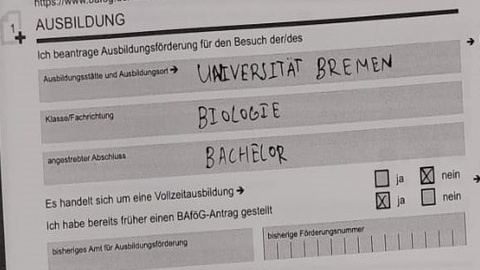 1 AUSBILDUNG
Ich beantrage Ausbildungsförderung für den Besuch der/des
Ausbildungsstätte und Ausbildungsort → UNIVERSITÄT BREMEN
Klasse/Fachrichtung BIOLOGIE
angestrebter Abschluss BACHELOR
Es handelt sich um eine Vollzeitausbildung → ja nein
Ich habe bereits früher einen BAföG-Antrag gestellt ja nein
bisheriges Amt für Ausbildungsförderung bisherige Förderungsnummer